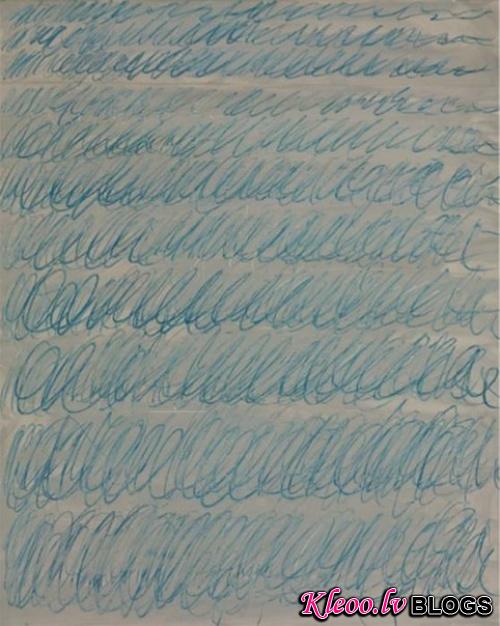 Kleoo.lv BLOGS